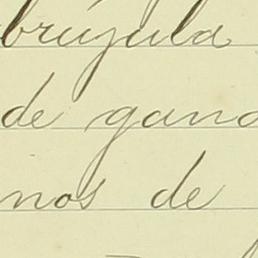 brújula
de gana
nos de